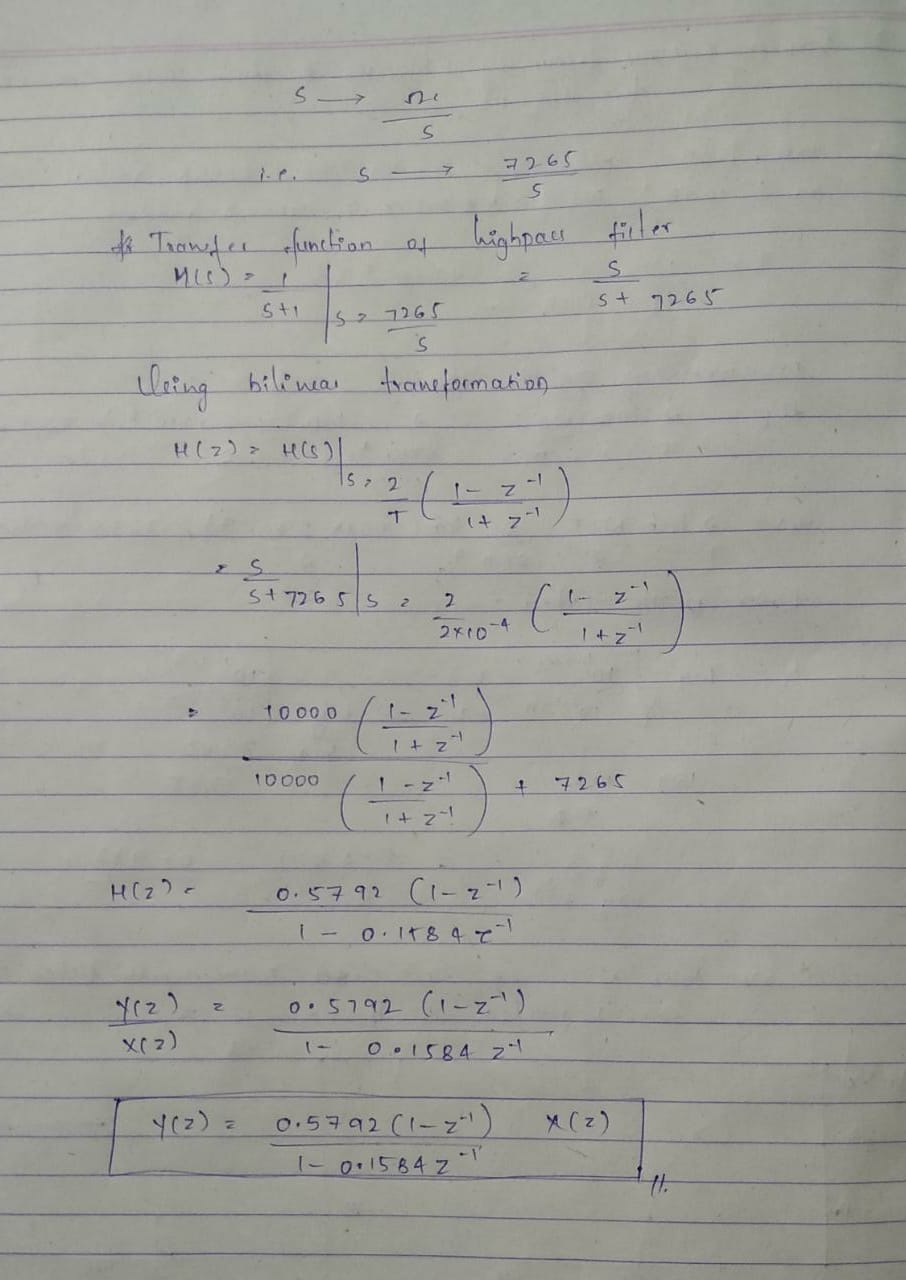 S → Ωc/S
i.e. S → 7265/S
Transfer function of highpass filter
H(s) = 1/(S+1) | S = 7265/S = S/(S + 7265)
Using bilinear transformation
H(z) = H(s) | S = 2/T ( (1 - z^-1)/(1 + z^-1) )
= S/(S + 7265) | S = 2/(2×10^-4) ( (1 - z^-1)/(1 + z^-1) )
= 10000 ( (1 - z^-1)/(1 + z^-1) ) / ( 10000 ( (1 - z^-1)/(1 + z^-1) ) + 7265 )
H(z) = 0.5792 (1 - z^-1) / (1 - 0.1584 z^-1)
Y(z)/X(z) = 0.5792 (1 - z^-1) / (1 - 0.1584 z^-1)
Y(z) = 0.5792 (1 - z^-1) / (1 - 0.1584 z^-1) X(z)